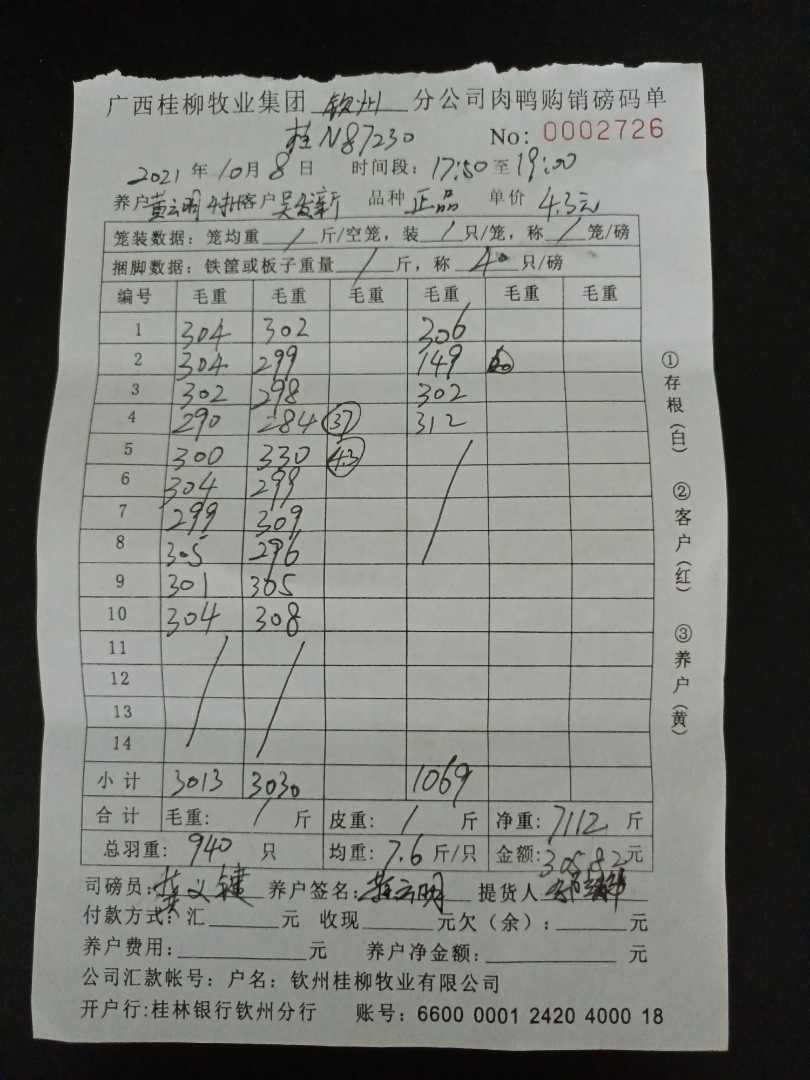 广西桂柳牧业集团 钦州 分公司肉鸭购销磅码单
桂N87230 No: 0002726
2021 年 10 月 8 日 时间段: 17:50 至 19:00
养户 黄云明 客户 吴发新 品种 正品 单价 4.3元
笼装数据: 笼均重 / 斤/空笼, 装 / 只/笼, 称 / 笼/磅
捆脚数据: 铁筐或板子重量 / 斤, 称 40 只/磅
编号 毛重 毛重 毛重 毛重 毛重 毛重
1 304 302 306
2 304 299 149 20
3 302 298 302
4 290 284 37 312
5 300 330 43
6 304 299
7 299 309
8 305 296
9 301 305
10 304 308
11
12
13
14
小计 3013 3030 1069
合计 毛重: / 斤 皮重: / 斤 净重: 7112 斤
总羽重: 940 只 均重: 7.6 斤/只 金额: 30582元
司磅员: 黄义健 养户签名: 黄云明 提货人
付款方式: 汇 元 收现 元欠(余): 元
养户费用: 元 养户净金额: 元
公司汇款帐号: 户名: 钦州桂柳牧业有限公司
开户行:桂林银行钦州分行 账号: 6600 0001 2420 4000 18
①存根(白) ②客户(红) ③养户(黄)